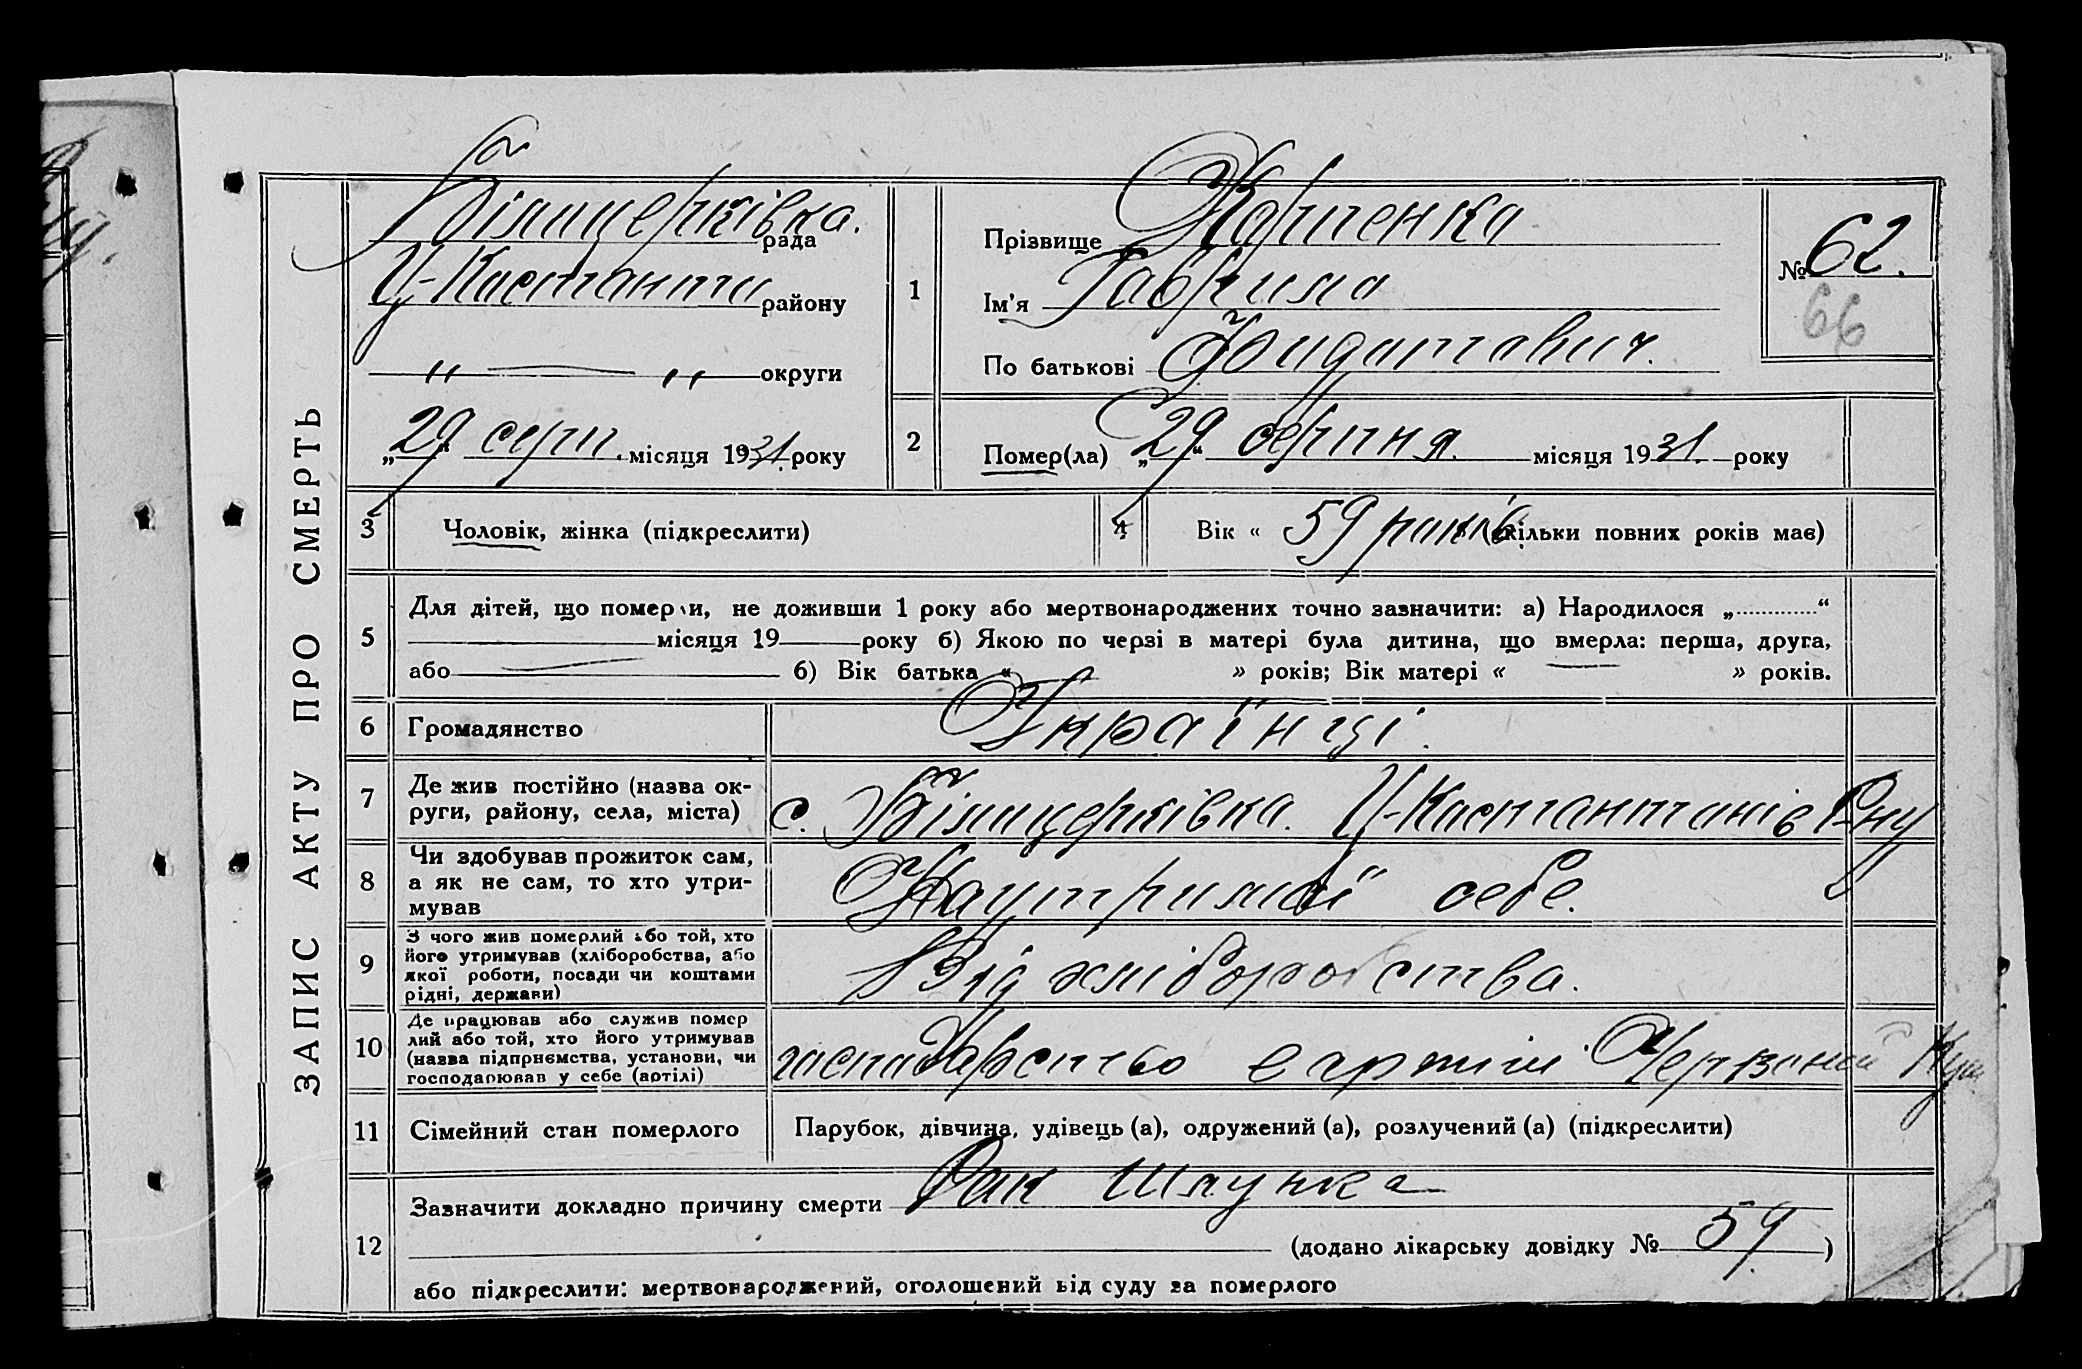 ЗАПИС АКТУ ПРО СМЕРТЬ
Білицерківка. рада
району
„ — „ округи
„29“ серп. місяця 1931. року
1
Прізвище
Ім'я Гаврило
По батькові
№ 62.
66
2
Помер(ла) „29“ серпня. місяця 1931. року
3
Чоловік, жінка (підкреслити)
4
Вік « 59 років (скільки повних років має)
5
Для дітей, що померли, не доживши 1 року або мертвонароджених точно зазначити: а) Народилося „ “
місяця 19 року б) Якою по черзі в матері була дитина, що вмерла: перша, друга,
або б) Вік батька « » років; Вік матері « » років.
6
Громадянство
Українці.
7
Де жив постійно (назва ок-
руги, району, села, міста)
с. Білицерківка.
8
Чи здобував прожиток сам,
а як не сам, то хто утри-
мував
себе.
9
З чого жив померлий або той, хто
його утримував (хліборобства, або
якої роботи, посади чи коштами
рідні, держави)
Від хліборобства.
10
Де працював або служив помер
лий або той, хто його утримував
(назва підприємства, установи, чи
господарював у себе (артілі)
в артілі
11
Сімейний стан померлого
Парубок, дівчина, удівець (а), одружений (а), розлучений (а) (підкреслити)
12
Зазначити докладно причину смерти Рак шлунка
(додано лікарську довідку № 59. )
або підкреслити: мертвонароджений, оголошений від суду за померлого